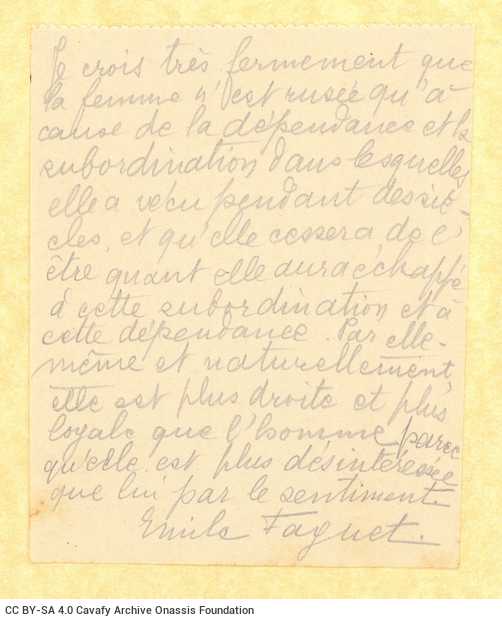 Je crois très fermement que
la femme n'est rusée qu'à
cause de la dépendance et la
subordination dans lesquelles
elle a vécu pendant des siè-
cles, et qu'elle cessera de l'
être quant elle aura échappé
à cette subordination et à
cette dépendance. Par elle-
même et naturellement,
elle est plus droite et plus
loyale que l'homme parce
qu'elle est plus désintéressée
que lui par le sentiment.
Emile Faguet.
CC BY-SA 4.0 Cavafy Archive Onassis Foundation